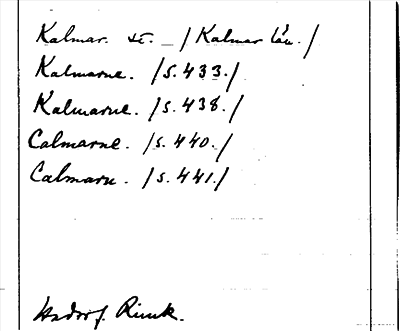 Kalmar. st. — / Kalmar län. /
Kalmarne. /s. 433./
Kalmarne. /s. 438./
Calmarne. /s. 440./
Calmarn. /s. 441./
Hadorf. Rimk.